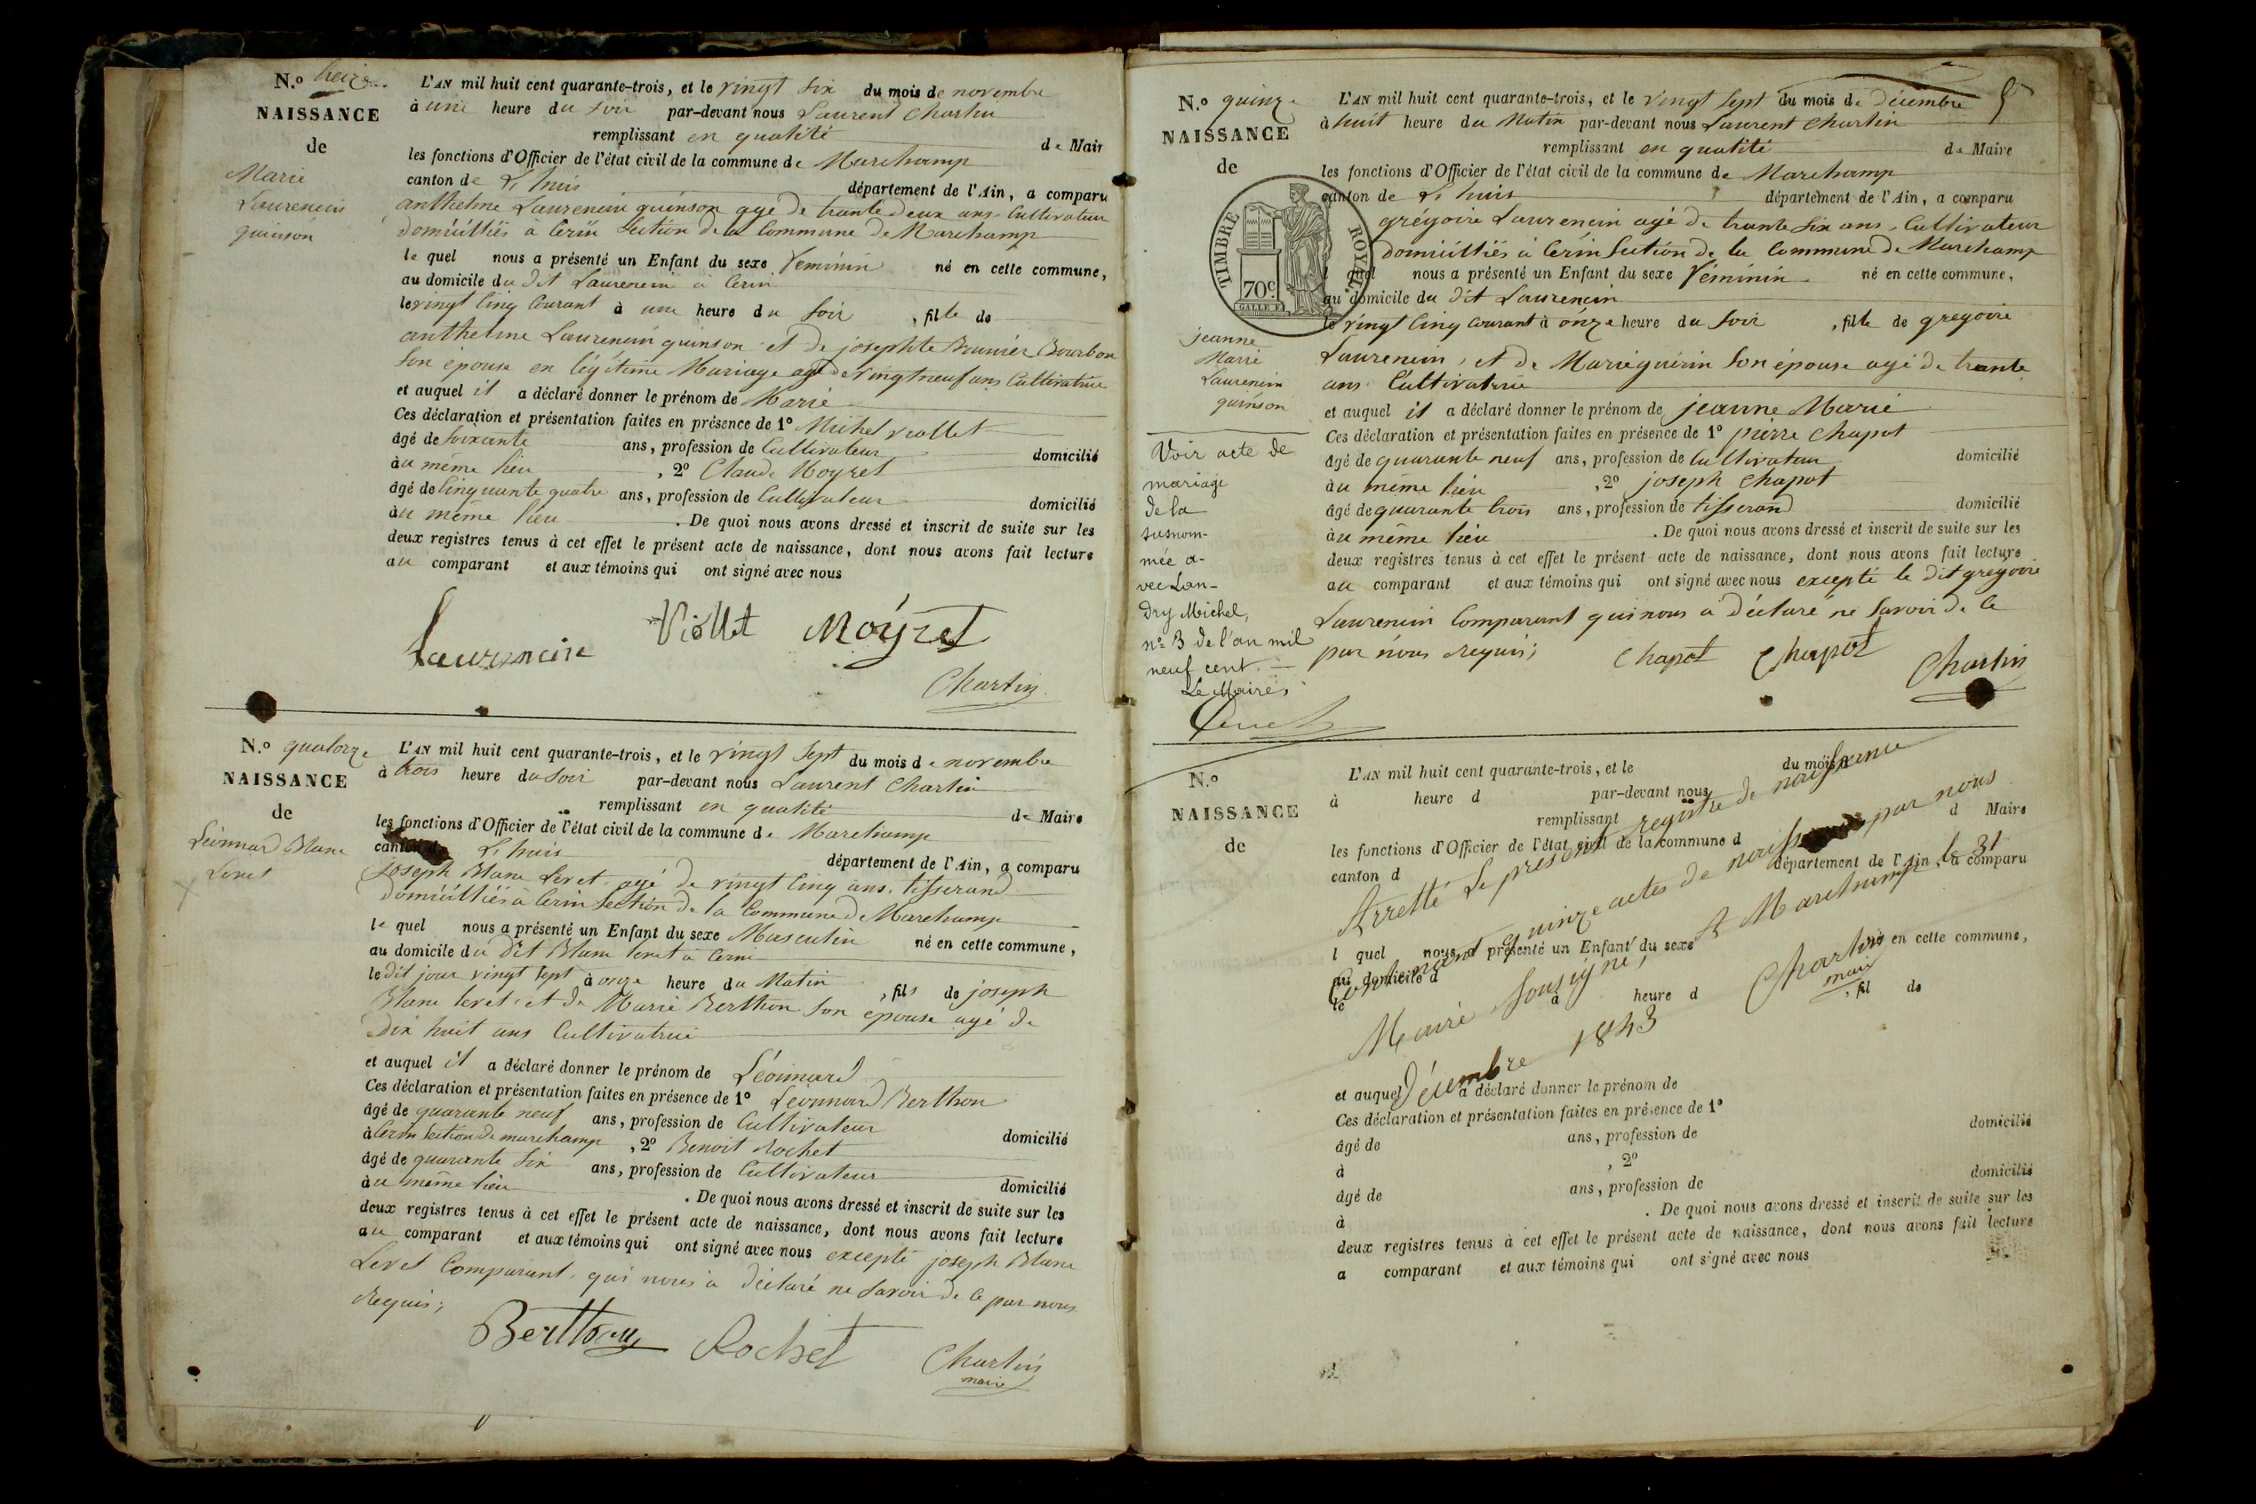 N.o treize
NAISSANCE
de
Marie
Laurencin
quinson
L'AN mil huit cent quarante-trois, et le vingt six du mois de novembre
à une heure du soir par-devant nous Laurent Chartin
remplissant en qualité de Mair
les fonctions d'Officier de l'état civil de la commune de Marchamp
canton de L'huis département de l'Ain, a comparu
anthelme Laurencin quinson agé de trante deux ans Cultivateur
domiciliés à Cerin Section de la Commune de Marchamp
le quel nous a présenté un Enfant du sexe Féminin né en cette commune,
au domicile du dit Laurencin à Cerin
le vingt Cinq Courant à une heure du soir, fille de
anthelme Laurencin quinson et de josephte Bourbon
son épouse en légitime Mariage agé de vingt neuf ans Cultivatrice
et auquel il a déclaré donner le prénom de Marie
Ces déclaration et présentation faites en présence de 1º Michel Viollet
âgé de soixante ans, profession de Cultivateur domicilié
àu même lieu, 2º Claude Moyret
âgé de Cinquante quatre ans, profession de Cultivateur domicilié
àu même lieu. De quoi nous avons dressé et inscrit de suite sur les
deux registres tenus à cet effet le présent acte de naissance, dont nous avons fait lecture
au comparant et aux témoins qui ont signé avec nous
Laurencin Viollet Moyret
Chartin
N.o quatorze
NAISSANCE
de
Léonnard Blanc
Levet
L'AN mil huit cent quarante-trois, et le vingt Sept du mois de novembre
à trois heure du soir par-devant nous Laurent Chartin
remplissant en qualité de Maire
les fonctions d'Officier de l'état civil de la commune de Marchamp
canton de L'huis département de l'Ain, a comparu
Joseph Blanc Levet agé de vingt Cinq ans tisserand
domiciliés à Cerin Section de la Commune de Marchamp
le quel nous a présenté un Enfant du sexe Masculin né en cette commune,
au domicile du dit Blanc levet à Cerin
le dit jour vingt sept à onze heure du Matin, fils de joseph
Blanc levet et de Marie Berthon son épouse agé de
Dix huit ans Cultivatrice
et auquel il a déclaré donner le prénom de Léonnard
Ces déclaration et présentation faites en présence de 1º Léonnard Berthon
âgé de quarante neuf ans, profession de Cultivateur domicilié
à Cerin Section de marchamp, 2º Benoit Rochet
âgé de quarante six ans, profession de Cultivateur domicilié
àu même lieu. De quoi nous avons dressé et inscrit de suite sur les
deux registres tenus à cet effet le présent acte de naissance, dont nous avons fait lecture
au comparant et aux témoins qui ont signé avec nous excepté joseph Blanc
Levet Comparant qui nous à déclaré ne savoir de ce par nous
Requis;
Berthon Rochet Chartin
maire
5
N.o quinze
NAISSANCE
de
TIMBRE ROYAL
70c
jeanne
Marie
Laurencin
quinson
Voir acte de
mariage
de la
susnom-
mée a-
vec Lan-
dry Michel,
nº 3 de l'an mil
neuf cent.
Le Maire,
L'AN mil huit cent quarante-trois, et le vingt Sept du mois de décembre
à huit heure du Matin par-devant nous Laurent Chartin
remplissant en qualité de Maire
les fonctions d'Officier de l'état civil de la commune de Marchamp
canton de L'huis département de l'Ain, a comparu
grégoire Laurencin agé de trante six ans, Cultivateur
domiciliés à Cerin Section de la Commune de Marchamp
l quel nous a présenté un Enfant du sexe Féminin né en cette commune,
au domicile du dit Laurencin
le vingt Cinq Courant à onze heure du soir, fille de gregoire
Laurencin, et de Marie guérin son épouse agé de trante
ans Cultivatrice
et auquel il a déclaré donner le prénom de jeanne Marie
Ces déclaration et présentation faites en présence de 1º pierre Chapot
âgé de quarante neuf ans, profession de Cultivateur domicilié
àu même lieu, 2º joseph Chapot
âgé de quarante trois ans, profession de tisserand domicilié
àu même lieu. De quoi nous avons dressé et inscrit de suite sur les
deux registres tenus à cet effet le présent acte de naissance, dont nous avons fait lecture
au comparant et aux témoins qui ont signé avec nous excepté le dit gregoire
Laurencin Comparant qui nous à déclaré ne savoir de ce
par nous requis;
Chapot Chapot Chartin
N.o
NAISSANCE
de
L'AN mil huit cent quarante-trois, et le du mois d
à heure d par-devant nous
remplissant d Maire
les fonctions d'Officier de l'état civil de la commune d
canton d département de l'Ain, a comparu
Arretté Le présent registre de naissance
Contenant quinze actes de naissance par nous
Maire sousigné, A Marchamp le 31
Décembre 1843
Chartin
maire
l quel nous a présenté un Enfant du sexe né en cette commune,
au domicile d
le à heure d, fil de
et auquel a déclaré donner le prénom de
Ces déclaration et présentation faites en présence de 1º
âgé de ans, profession de domicilié
à, 2º
âgé de ans, profession de domicilié
à. De quoi nous avons dressé et inscrit de suite sur les
deux registres tenus à cet effet le présent acte de naissance, dont nous avons fait lecture
a comparant et aux témoins qui ont signé avec nous